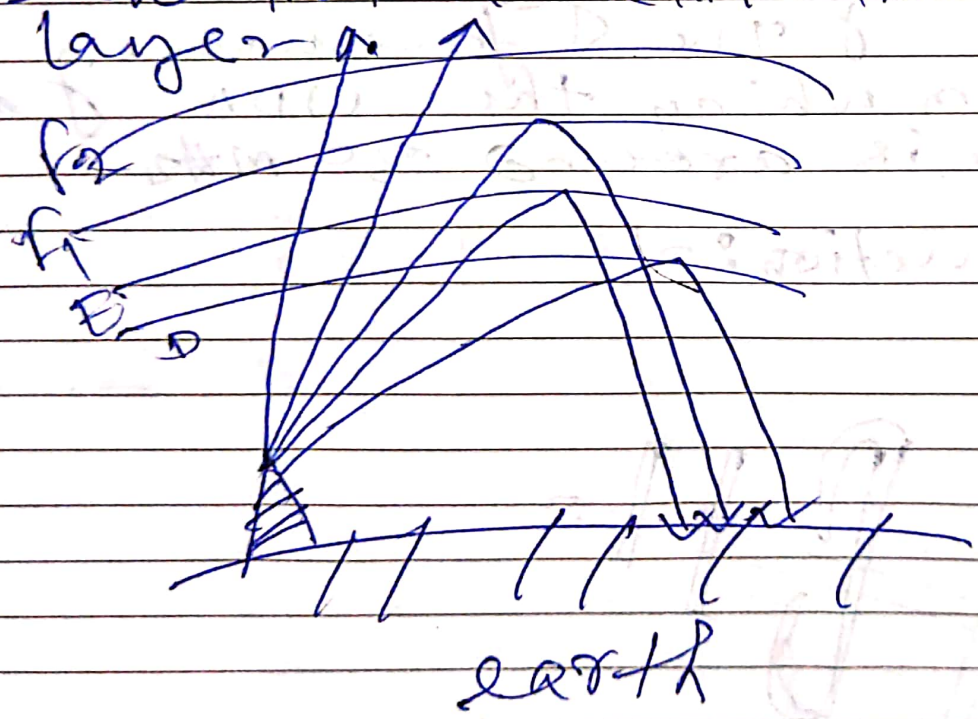 layer
F2
F1
E
D
earth